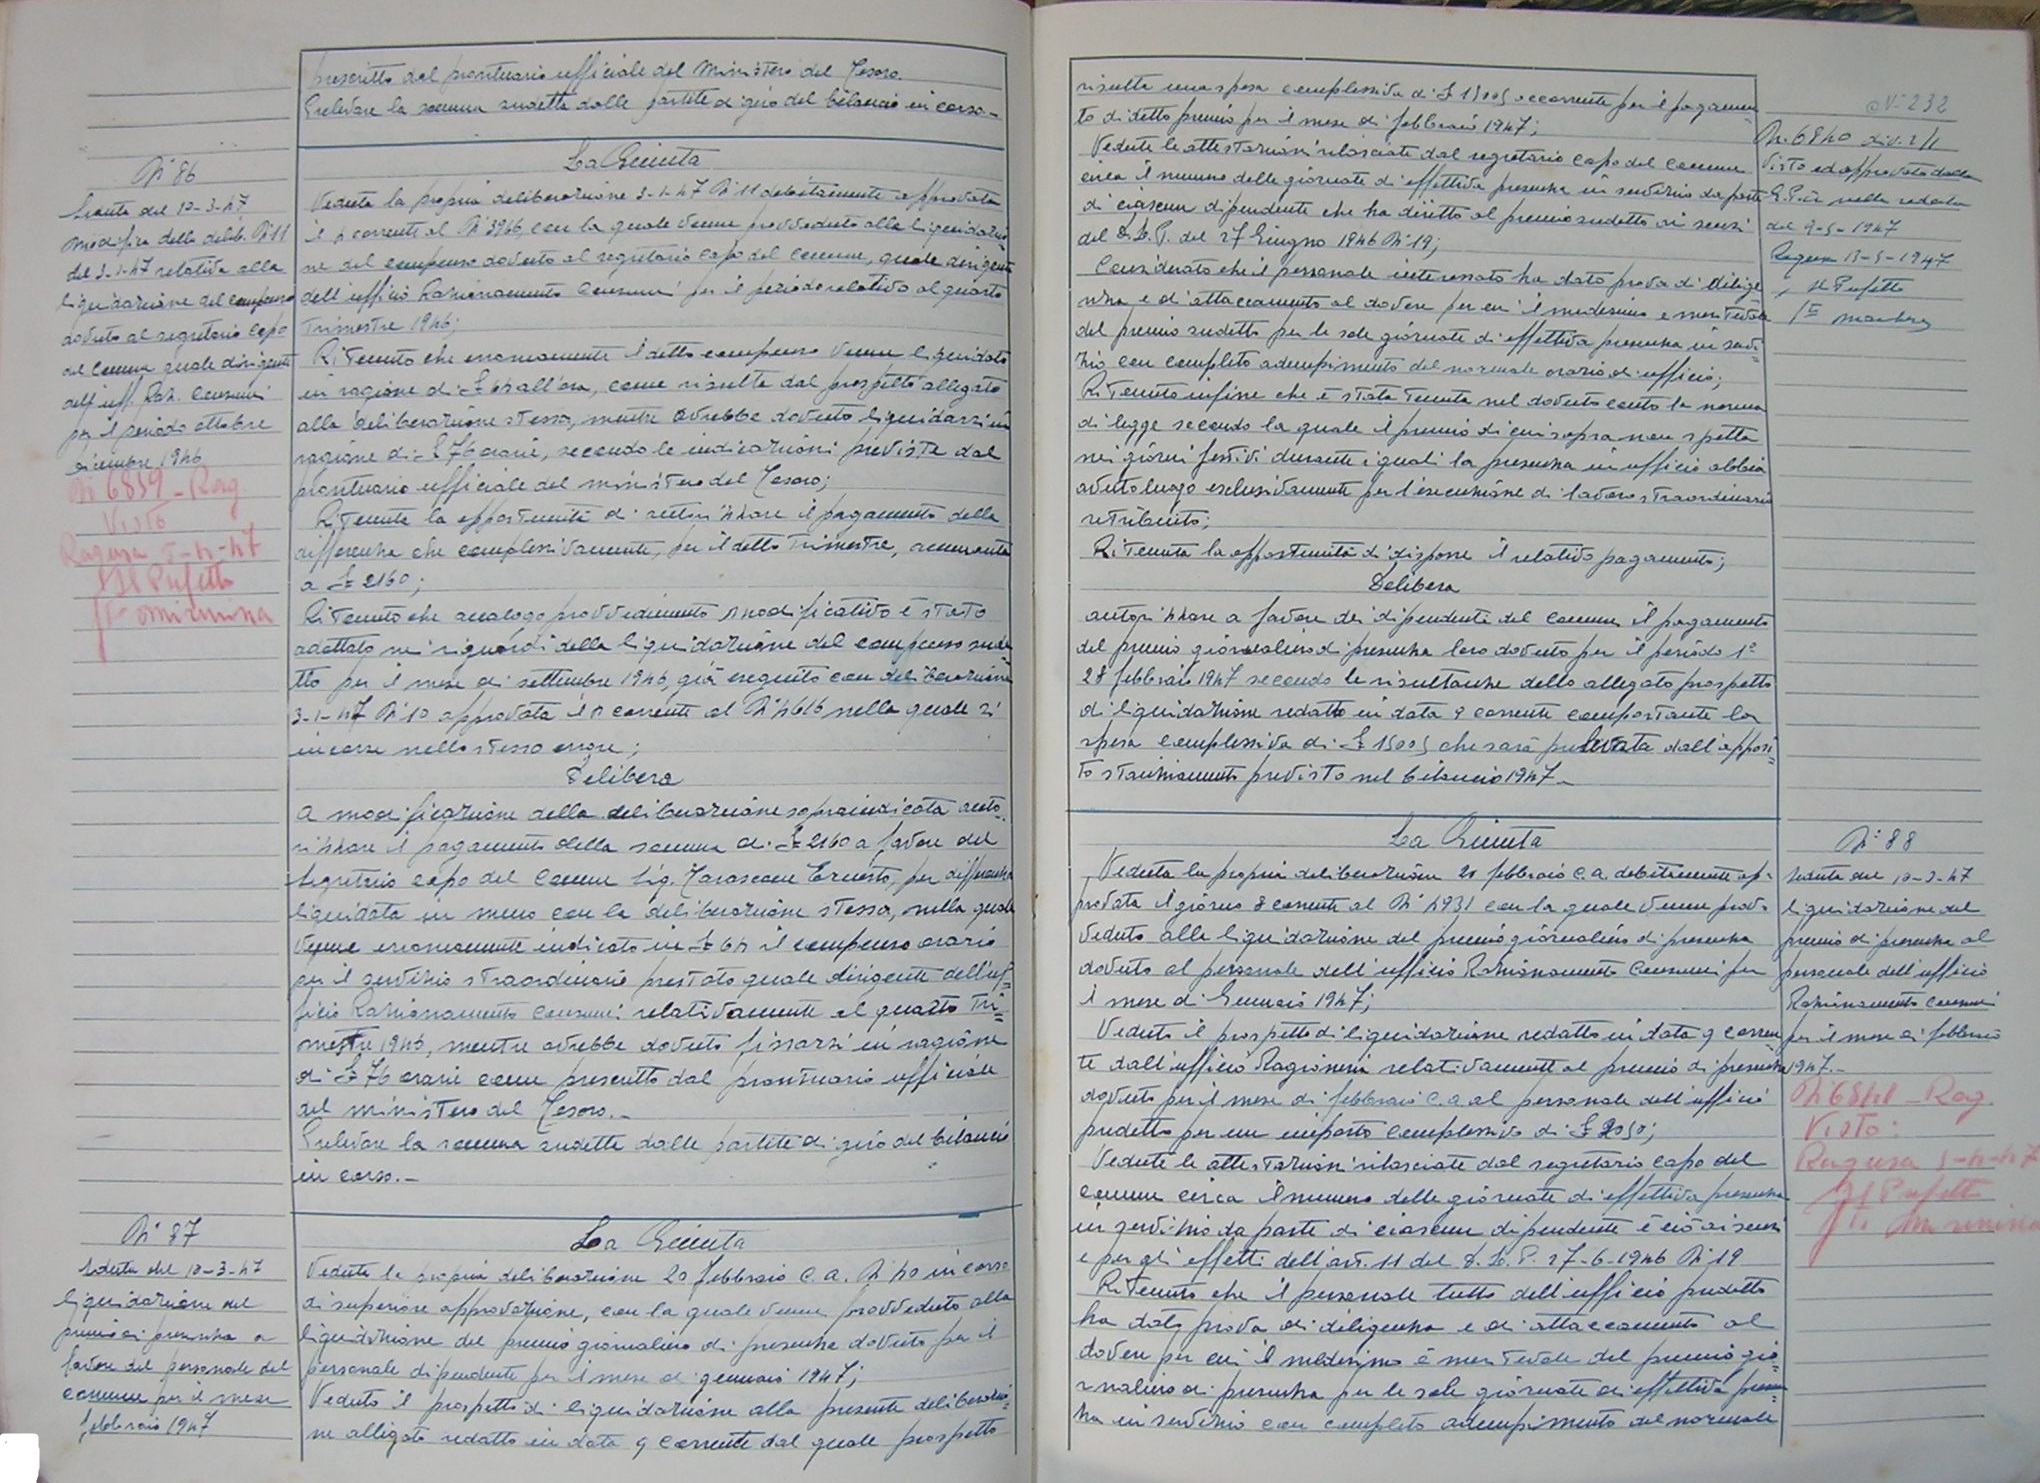 prescritto dal prontuario ufficiale del Ministero del Tesoro.
Prelevare la somma sudetta dalle partite di giro del bilancio in corso.-
N° 86
Seduta del 10-3-47
modifica della delib. N° 11
del 3-1-47 relativa alla
liquidazione del compenso
dovuto al segretario capo
del comune quale dirigente
dell'uff. Raz. Consumi
per il periodo ottobre
dicembre 1946
N° 6839 - Rag
Visto
Ragusa 5-4-47
Il Prefetto
La Giunta
Veduta la propria deliberazione 3-1-47 N° 11 debitamente approvata
il 4 corrente al N° 3966, con la quale venne provveduto alla liquidazio=
ne del compenso dovuto al segretario capo del comune, quale dirigente
dell'ufficio Razionamento Consumi per il periodo relativo al quarto
trimestre 1946;
Ritenuto che erroneamente il detto compenso venne liquidato
in ragione di £ 64 all'ora, come risulta dal prospetto allegato
alla deliberazione stessa, mentre avrebbe dovuto liquidarsi in
ragione di £ 76 orarie, secondo le indicazioni previste dal
prontuario ufficiale del ministero del Tesoro;
Ritenuta la opportunità di autorizzare il pagamento della
differenza che complessivamente, per il detto trimestre, ammonta
a £ 2160;
Ritenuto che analogo provvedimento modificativo è stato
adottato nei riguardi della liquidazione del compenso sude
tto per il mese di settembre 1946, già eseguito con deliberazione
3-1-47 N° 10 approvata il 4 corrente al N° 4616 nella quale si
incorse nello stesso errore;
Delibera
a modificazione della deliberazione sopraindicata auto=
rizzare il pagamento della somma di £ 2160 a favore del
Segretario capo del Comune Sig. Tarascone Ernesto, per differenza
liquidata in meno con la deliberazione stessa, nella quale
venne erroneamente indicato in £ 64 il compenso orario
per il servizio straordinario prestato quale dirigente dell'uf=
ficio Razionamento Consumi relativamente al quarto tri=
mestre 1946, mentre avrebbe dovuto fissarsi in ragione
di £ 76 orarie come prescritto dal prontuario ufficiale
del ministero del Tesoro.-
Prelevare la somma sudetta dalle partite di giro del bilancio
in corso.-
N° 87
Seduta del 10-3-47
liquidazione del
premio di presenza a
favore del personale del
comune per il mese
febbraio 1947
La Giunta
Veduta la propria deliberazione 20 febbraio c.a. N° 40 in corso
di superiore approvazione, con la quale venne provveduto alla
liquidazione del premio giornaliero di presenza dovuto per il
personale dipendente per il mese di gennaio 1947;
Veduto il prospetto di liquidazione alla presente deliberazio=
ne allegato redatto in data 9 corrente dal quale prospetto
risulta una spesa complessiva di £ 15005 occorrente per il pagamen=
to di detto premio per il mese di febbraio 1947;
Vedute le attestazioni rilasciate dal segretario capo del comune
circa il numero delle giornate di effettiva presenza in servizio da parte
di ciascun dipendente che ha diritto al premio sudetto ai sensi
del D.L.P. del 27 Giugno 1946 N° 19;
Considerato che il personale interessato ha dato prova di dilige
nza e di attaccamento al dovere per cui il medesimo è meritevole
del premio sudetto per le sole giornate di effettiva presenza in servi=
zio con completo adempimento del normale orario d'ufficio;
Ritenuto infine che è stata tenuta nel dovuto conto la norma
di legge secondo la quale il premio di cui sopra non spetta
nei giorni festivi durante i quali la presenza in ufficio abbia
avuto luogo esclusivamente per l'esecuzione di lavoro straordinario
retribuito;
Ritenuta la opportunità di disporre il relativo pagamento;
Delibera
autorizzare a favore dei dipendenti del comune il pagamento
del premio giornaliero di presenza loro dovuto per il periodo 1°
28 febbraio 1947 secondo le risultanze dello allegato prospetto
di liquidazione redatto in data 9 corrente comportante la
spesa complessiva di £ 15005 che sarà prelevata dall'apposi=
to stanziamento previsto nel bilancio 1947.-
N° 232
N. 6840 div. 2/1
Visto ed approvato dalla
G.P.A. nella seduta
del 9-5-1947
Ragusa 13-5-1947
Il Prefetto
La Giunta
Veduta la propria deliberazione 20 febbraio c.a. debitamente ap=
provata il giorno 8 corrente al N° 4931 con la quale venne prov=
veduto alla liquidazione del premio giornaliero di presenza
dovuto al personale dell'ufficio Razionamento Consumi per
il mese di Gennaio 1947;
Veduto il prospetto di liquidazione redatto in data 9 corren
te dall'ufficio Ragioneria relativamente al premio di presenza
dovuto per il mese di febbraio c.a. al personale dell'ufficio
predetto per un importo complessivo di £ 2050;
Vedute le attestazioni rilasciate dal segretario capo del
comune circa il numero delle giornate di effettiva presenza
in servizio da parte di ciascun dipendente e ciò ai sensi
e per gli effetti dell'art. 11 del D.L.P. 27-6-1946 N° 19
Ritenuto che il personale tutto dell'ufficio predetto
ha dato prova di diligenza e di attaccamento al
dovere per cui il medesimo è meritevole del premio gio=
rnaliero di presenza per le sole giornate di effettiva presen
za in servizio con completo adempimento del normale
N° 88
Seduta del 10-3-47
liquidazione del
premio di presenza al
personale dell'ufficio
Razionamento consumi
per il mese di febbraio
1947.-
N° 6841 - Rag.
Visto:
Ragusa 5-4-47
Il Prefetto